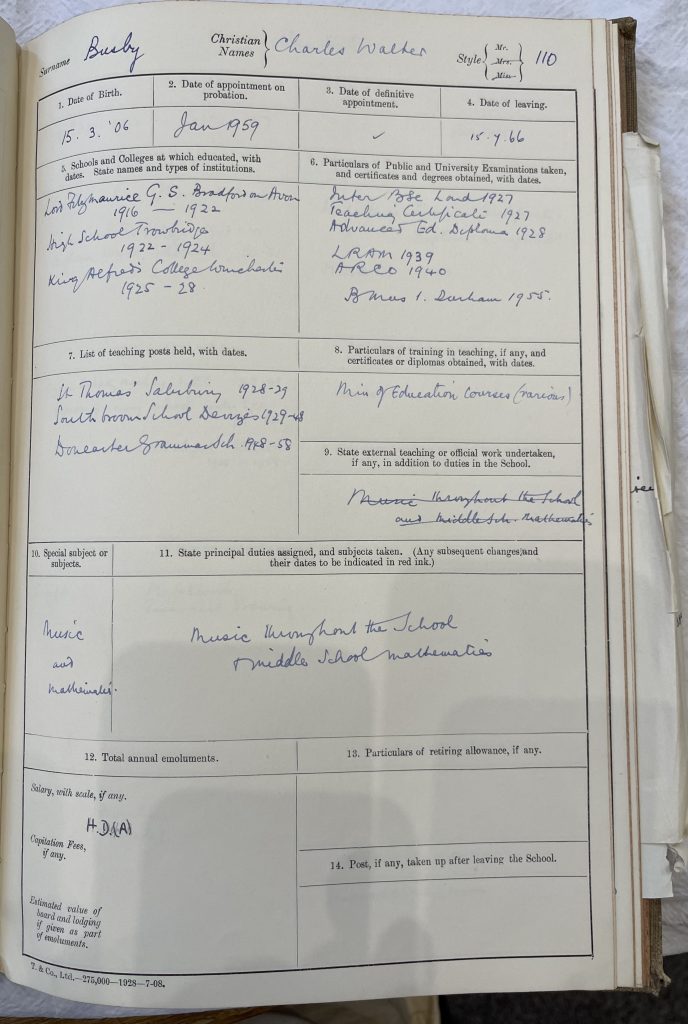 Surname Busby Christian Names } Charles Walter Style { Mr. Mrs. Miss 110
1. Date of Birth. 2. Date of appointment on probation. 3. Date of definitive appointment. 4. Date of leaving.
15. 3. '06 Jan 1959 ✓ 15.7.66
5. Schools and Colleges at which educated, with dates. State names and types of institutions.
Lord Fitzmaurice G. S. Bradford on Avon
1916 — 1922
High School Trowbridge
1922 - 1924
King Alfred's College Winchester
1925 - 28.
6. Particulars of Public and University Examinations taken, and certificates and degrees obtained, with dates.
Inter BSc Lond 1927
Teaching Certificate 1927
Advanced Ed. Diploma 1928
LRAM 1939
ARCO 1940
B Mus 1. Durham 1955.
7. List of teaching posts held, with dates.
St Thomas' Salisbury 1928-29
Southbroom School Devizes 1929-48
Doncaster Grammar Sch. 1948-58
8. Particulars of training in teaching, if any, and certificates or diplomas obtained, with dates.
Min of Education Courses (various)
9. State external teaching or official work undertaken, if any, in addition to duties in the School.
Music throughout the School
and Middle Sch. Mathematics
10. Special subject or subjects.
Music
and
Mathematics.
11. State principal duties assigned, and subjects taken. (Any subsequent changes and their dates to be indicated in red ink.)
Music throughout the School
& Middle School Mathematics
12. Total annual emoluments.
Salary, with scale, if any.
H.D.(A)
Capitation Fees, if any.
Estimated value of board and lodging if given as part of emoluments.
13. Particulars of retiring allowance, if any.
14. Post, if any, taken up after leaving the School.
T. & Co., Ltd.—275,000—1928—7-08.